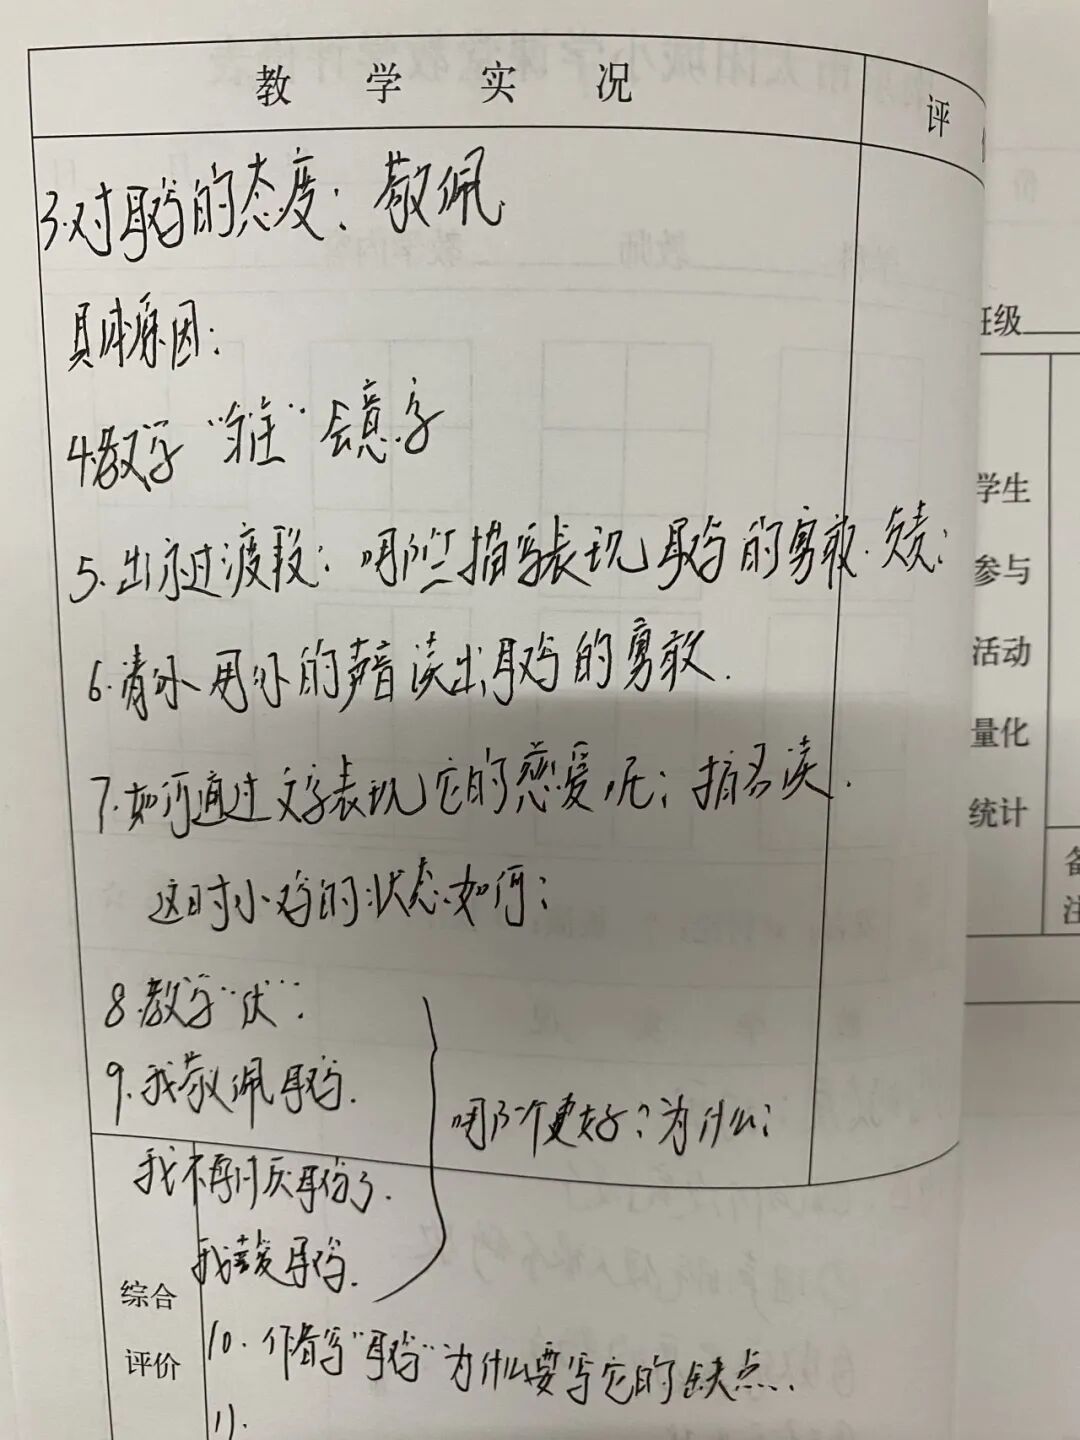 教学实况
评
3.对母鸡的态度：敬佩
具体原因：
4.教学“雏”会意字
5.出示过渡段：哪些描写表现母鸡的勇敢.负责；
6.请你用你的声音读出母鸡的勇敢.
7.如何通过文字表现它的慈爱呢；指名读.
这时小鸡的状态如何；
8.教学“伏”.
9.我敬佩母鸡.
哪个更好？为什么；
我不再讨厌母鸡了.
我喜爱母鸡.
综合
评价
10.作者写“母鸡”为什么要写它的缺点.
11.
班级
学生
参与
活动
量化
统计
备
注